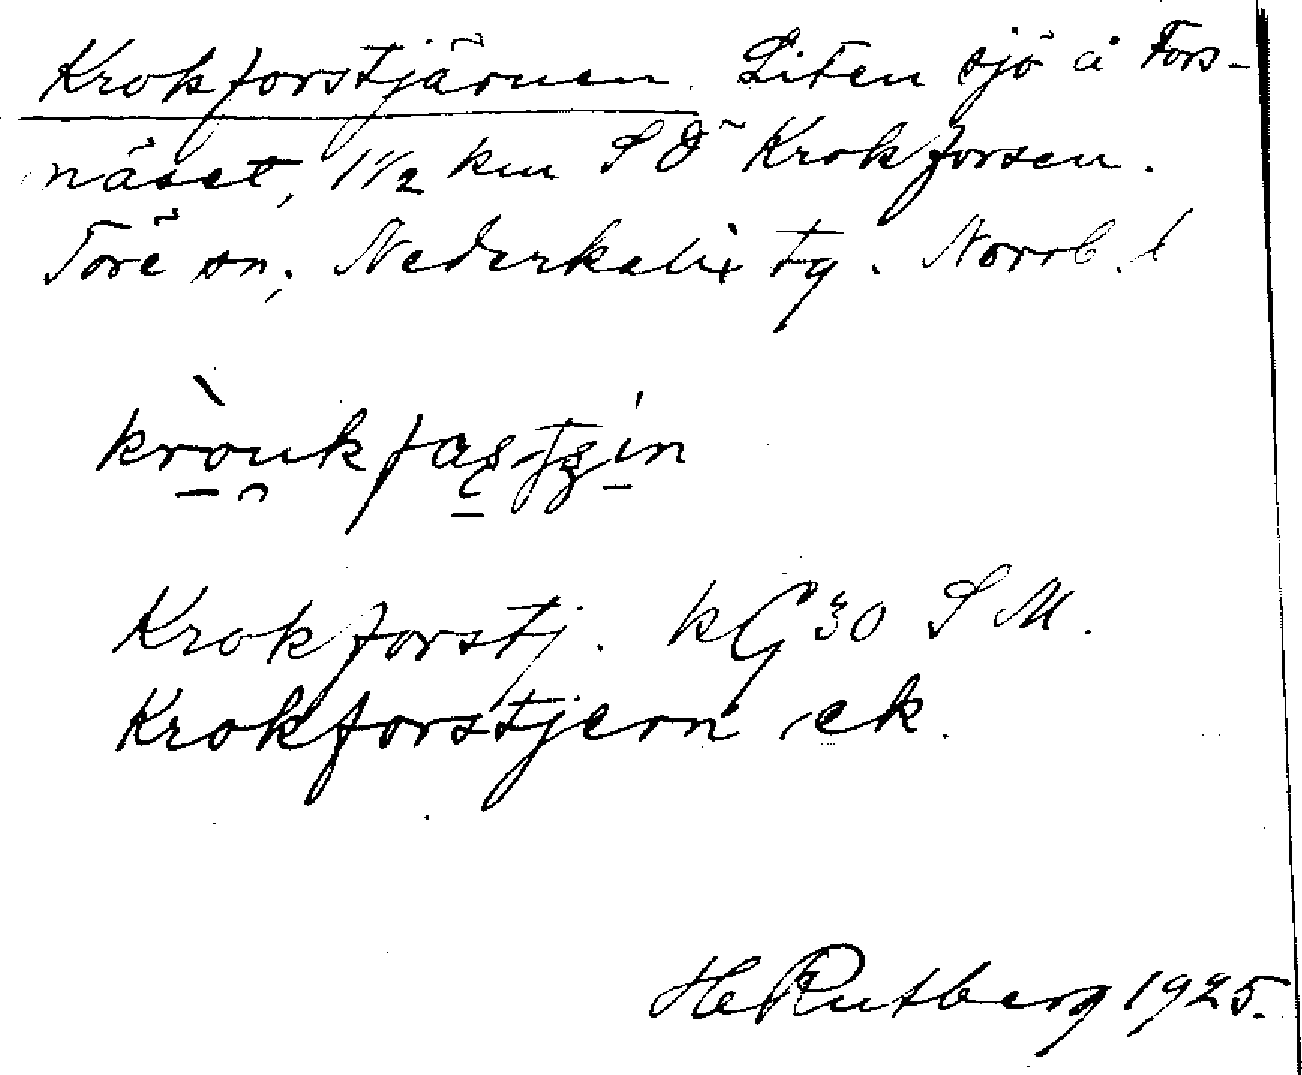 Krokforstjärnen. Liten sjö å Fors-
näset, 1½ km SÖ Krokforsen.
Töre sn, Nederkalix tg. Norrb. l
kròukfastʒin
Krokforstj. kG 30 SM.
Krokforstjern ek.
H Rutberg 1925.